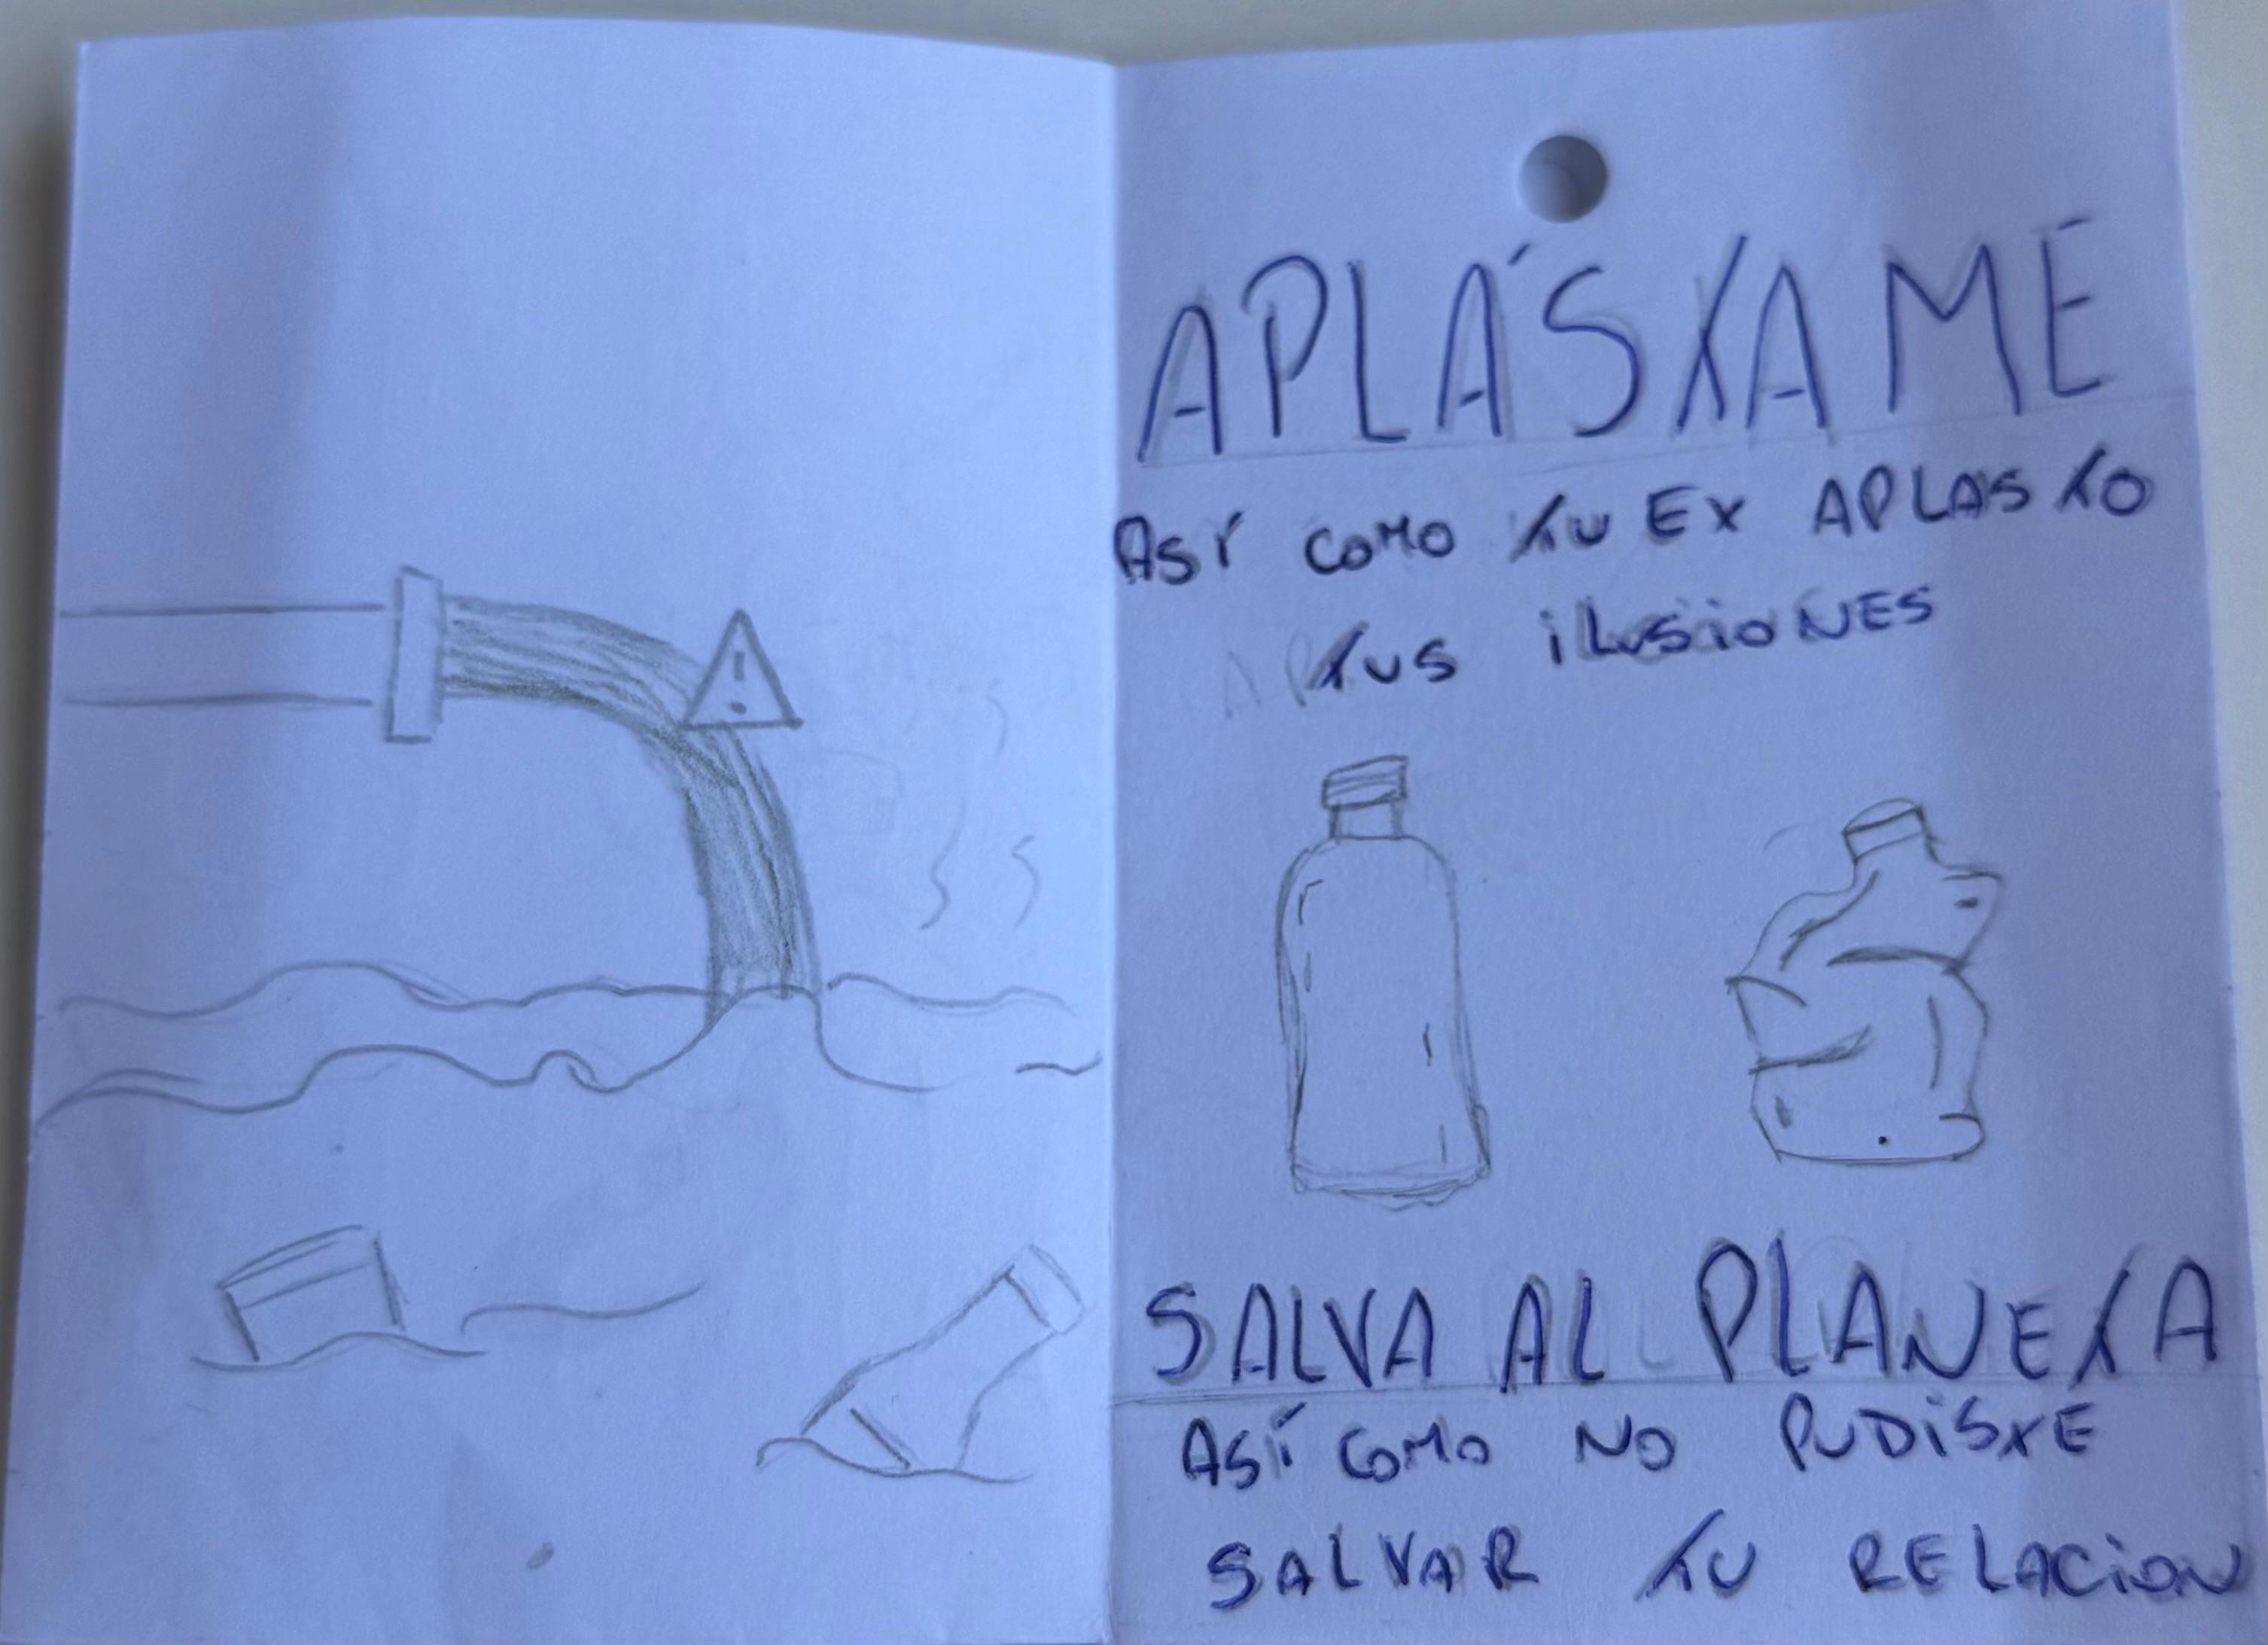 !
APLÁSTAME
ASÍ COMO TU EX APLASTO
TUS iLUSiONES
SALVA AL PLANETA
ASÍ COMO NO PUDiSTE
SALVAR TU RELACiON